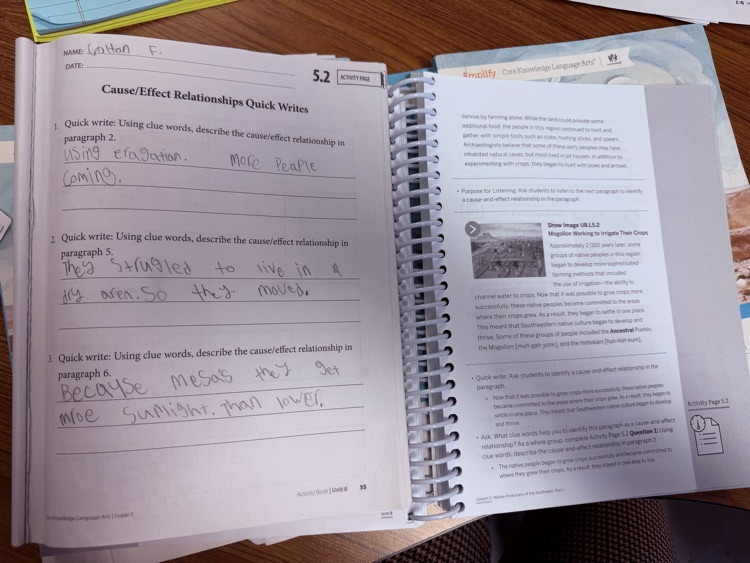 NAME: Colton F.
DATE:
5.2 ACTIVITY PAGE
Cause/Effect Relationships Quick Writes
1. Quick write: Using clue words, describe the cause/effect relationship in
paragraph 2.
Using eragation. More People
Coming.
2. Quick write: Using clue words, describe the cause/effect relationship in
paragraph 5.
They strugled to live in a
dry area. So they moved.
3. Quick write: Using clue words, describe the cause/effect relationship in
paragraph 6.
Becayse mesa's they get
mroe sumlight. than lower.
Activity Book | Unit 8 55
Knowledge Language Arts | Grade 5
Unit 8
Amplify Core Knowledge Language Arts
survive by farming alone. While the land could provide some
additional food, the people in this region continued to hunt and
gather with simple tools such as clubs, hunting sticks, and spears.
Archaeologists believe that some of these early peoples may have
inhabited natural caves, but most lived in pit houses. In addition to
experimenting with crops, they began to hunt with bows and arrows.
• Purpose for Listening: Ask students to listen to the next paragraph to identify
a cause-and-effect relationship in the paragraph.
Show Image U8.L5.2
Mogollon Working to Irrigate Their Crops
Approximately 2,000 years later, some
groups of native peoples in this region
began to develop more sophisticated
farming methods that included
the use of irrigation—the ability to
channel water to crops. Now that it was possible to grow crops more
successfully, these native peoples became committed to the areas
where their crops grew. As a result, they began to settle in one place.
This meant that Southwestern native culture began to develop and
thrive. Some of these groups of people included the Ancestral Pueblo,
the Mogollon [muh-gah-yohn], and the Hohokam [huh-hoh-kum].
• Quick write: Ask students to identify a cause-and-effect relationship in the
paragraph.
Now that it was possible to grow crops more successfully, these native peoples
became committed to the areas where their crops grew. As a result, they began to
settle in one place. This meant that Southwestern native culture began to develop
and thrive.
• Ask: What clue words help you to identify this paragraph as a cause-and-effect
relationship? As a whole group, complete Activity Page 5.2 Question 1: Using
clue words, describe the cause-and-effect relationship in paragraph 2.
The native people began to grow crops successfully and became committed to
where they grew their crops. As a result, they stayed in one area to live.
Activity Page 5.2
Lesson 5 Native Americans of the Southwest, Part I